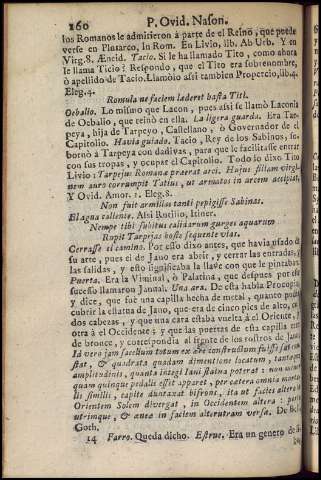 160 P. Ovid. Nason.
los Romanos le admitieron à parte del Reino, que puede
verse en Plutarco, in Rom. En Livio, lib. Ab Urb. Y en
Virg. 8. Æneid. Tacio. Si le ha llamado Tito, como ahora
le llama Ticio? Respondo, que el Tito era sobrenombre,
ò apellido de Tacio. Llamòlo assi tambien Propercio, lib. 4.
Eleg. 4.
Romula ne faciem laderet hasta Titi.
Oebalio. Lo mismo que Lacon, pues assi se llamò Laconia
de Oebalio, que reinò en ella. La ligera guarda. Era Tar-
peya, hija de Tarpeyo, Castellano, ò Governador de el
Capitolio. Havia guiado. Tacio, Rey de los Sabinos, so-
bornò à Tarpeya con dadivas, para que le facilitasse entrar
con sus tropas, y ocupar el Capitolio. Todo lo dixo Tito
Livio: Tarpejus Romanæ præerat arci. Hujus filiam virgi-
nem auro corrumpit Tatius, ut armatos in arcem accipiat.
Y Ovid. Amor. 1. Eleg. 8.
Non fuit armilias tanti pepigisse Sabinas.
El agua caliente. Assi Rutilio, Itiner.
Nempe tibi subitus calidarum gurges aquarum
Rupit Tarpejas hoste sequente vias.
Cerrasse el camino. Por esso dixo antes, que havia usado de
su arte, pues el de Jano era abrir, y cerrar las entradas, y
las salidas, y esto significaba la llave con que le pintaban.
Puerta. Era la Viminal, ò Palatina, que despues por este
sucesso llamaron Janual. Una ara. De esta habla Procopio,
y dice, que fuè una capilla hecha de metal, quanto podia
cubrir la estatua de Jano, que era de cinco pies de alto, con
dos cabezas, y que una cara estaba vuelta àl Oriente, y
otra à el Occidente; y que las puertas de esta capilla eran
de bronce, y correspondia al frente de los rostros de Jano:
Id verò jam sacellum totum ex ære constructum
stat, & quadrata quadam dimensione locatum, tantæque
amplitudinis, quanta integi Jani statua poterat: non minus
quam quinque pedalis esset apparet, per cætera omnia morta-
lis similis, capite duntaxat bifroni, ita ut facies altera ad
Orientem Solem divergat, in Occidentem altera: portis
utrimque, & ænea in faciem alterutram versa. De Bello
Goth.
14 Farro. Queda dicho. Estrue. Era un genero de